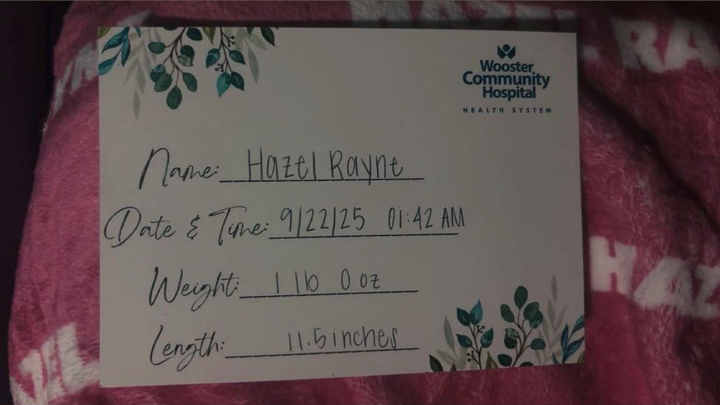 Wooster
Community
Hospital
HEALTH SYSTEM
Name: Hazel Rayne
Date & Time: 9/22/25 01:42 AM
Weight: 1 lb 0 oz
Length: 11.5 inches